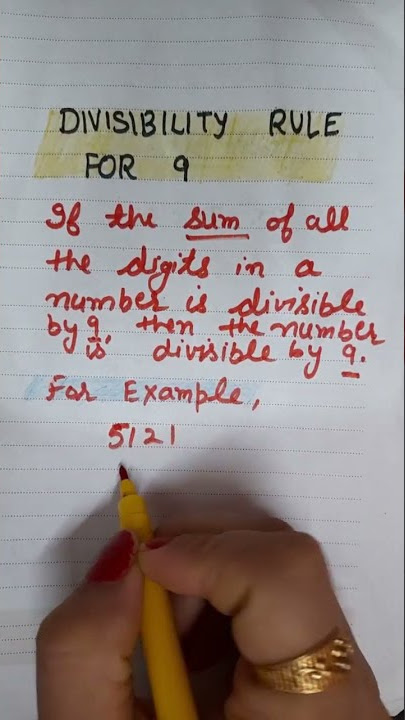 DIVISIBILITY RULE
FOR 9
If the sum of all
the digits in a
number is divisible
by 9, then the number
is divisible by 9.
For Example,
5121